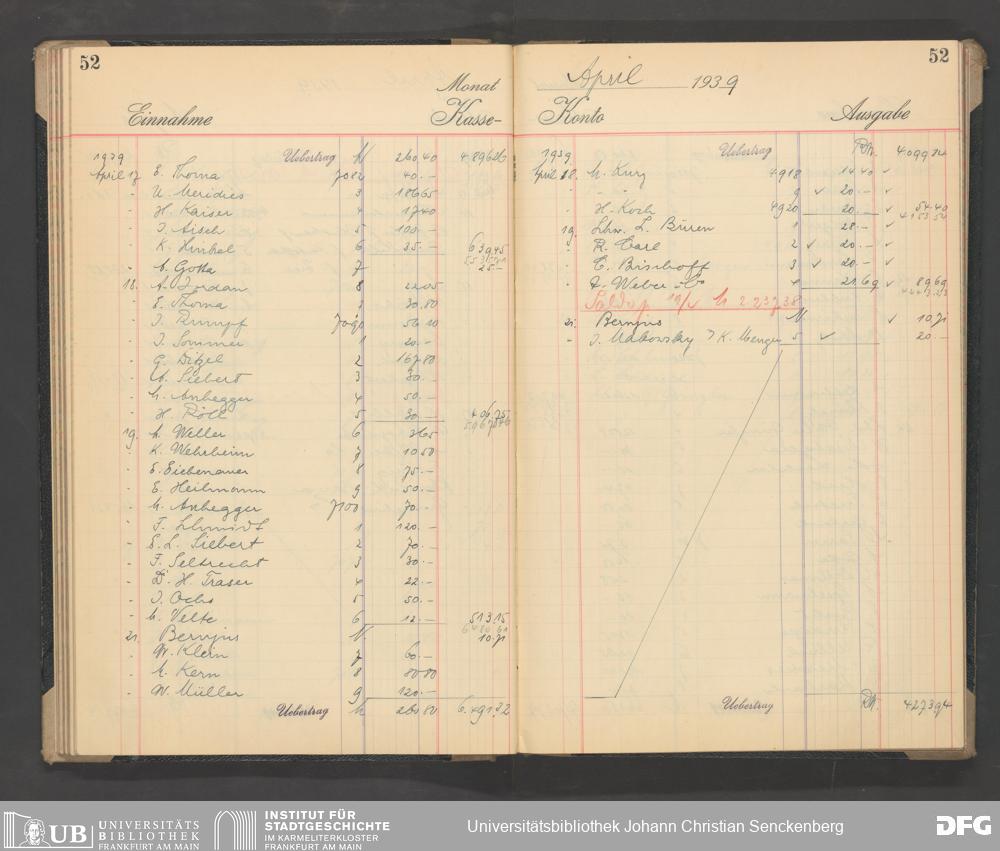 52
Monat
Einnahme Kasse-
1939 Uebertrag M 260 40 4896 26
April 17 E. Thoma 7082 40.-
- U. Meridies 3 186 65
- H. Kaiser 4 17 40
- J. Aisch 5 100.-
- K. Hinkel 6 35.- 639.45
- A. Gotta 7 25.-
18. A. Jordan 8 22 05
- E. Thoma 9 30.80
- J. Rumpf 7090 56 10
- J. Sommer 1 20.-
- G. Ditzel 2 167 80
- A. Siebert 3 30.-
- M. Anhegger 4 50.-
- H. Röll 5 30.- 406.75
19. A. Weller 6 3 65
- K. Wehrheim 7 10 50
- E. Eichenauer 8 75.-
- E. Heilmann 9 50.-
- M. Anhegger 7100 70.-
- F. Schmidt 1 120.-
- E. L. Siebert 2 70.-
- F. Seltrecht 3 30.-
- D. H. Traser 4 22.-
- J. Ochs 5 50.-
- A. Velte 6 12.- 513.15
21. Bernjus M. 10.71
- W. Klein 7 60.-
- A. Kern 8 80 80
- W. Müller 9 120.-
Uebertrag M 260 80 6.491.32
52
April 1939
Konto Ausgabe
1939 Uebertrag RM. 4099 24
April 18. M. Kurz 4918 14 40 ✓
- " " 9 ✓ 20.- ✓
- H. Koch 4920 20.- ✓ 54.40
19. Schw. L. Büren 1 28.- ✓
- R. Carl 2 ✓ 20.- ✓
- E. Bischoff 3 ✓ 20.- ✓
- F. Weber & Co 4 21 69 ✓ 89 69
Saldo p 19/IV M 2 237.38
21. Bernjus M. ✓ 10.71
- J. Makowsky / K. Menger 5 ✓ 20.-
Uebertrag RM. 4273 94
UB UNIVERSITÄTS
BIBLIOTHEK
FRANKFURT AM MAIN
INSTITUT FÜR
STADTGESCHICHTE
IM KARMELITERKLOSTER
FRANKFURT AM MAIN
Universitätsbibliothek Johann Christian Senckenberg
DFG